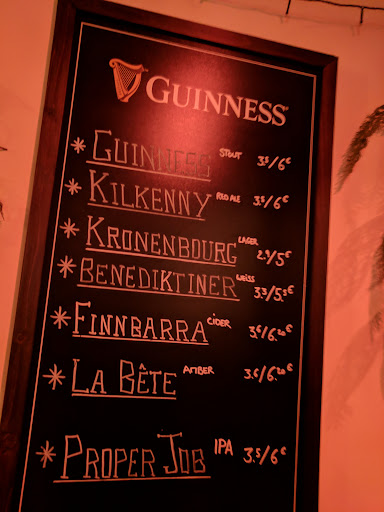 GUINNESS
* GUINNESS STOUT 3.5/6€
* KILKENNY RED ALE 3.5/6€
* KRONENBOURG LAGER 2.9/5€
* BENEDIKTINER WEISS 3.3/5.5€
* FINNBARRA CIDER 3.6/6.20€
* LA BÊTE AMBER 3.6/6.20€
* PROPER JOB IPA 3.5/6€